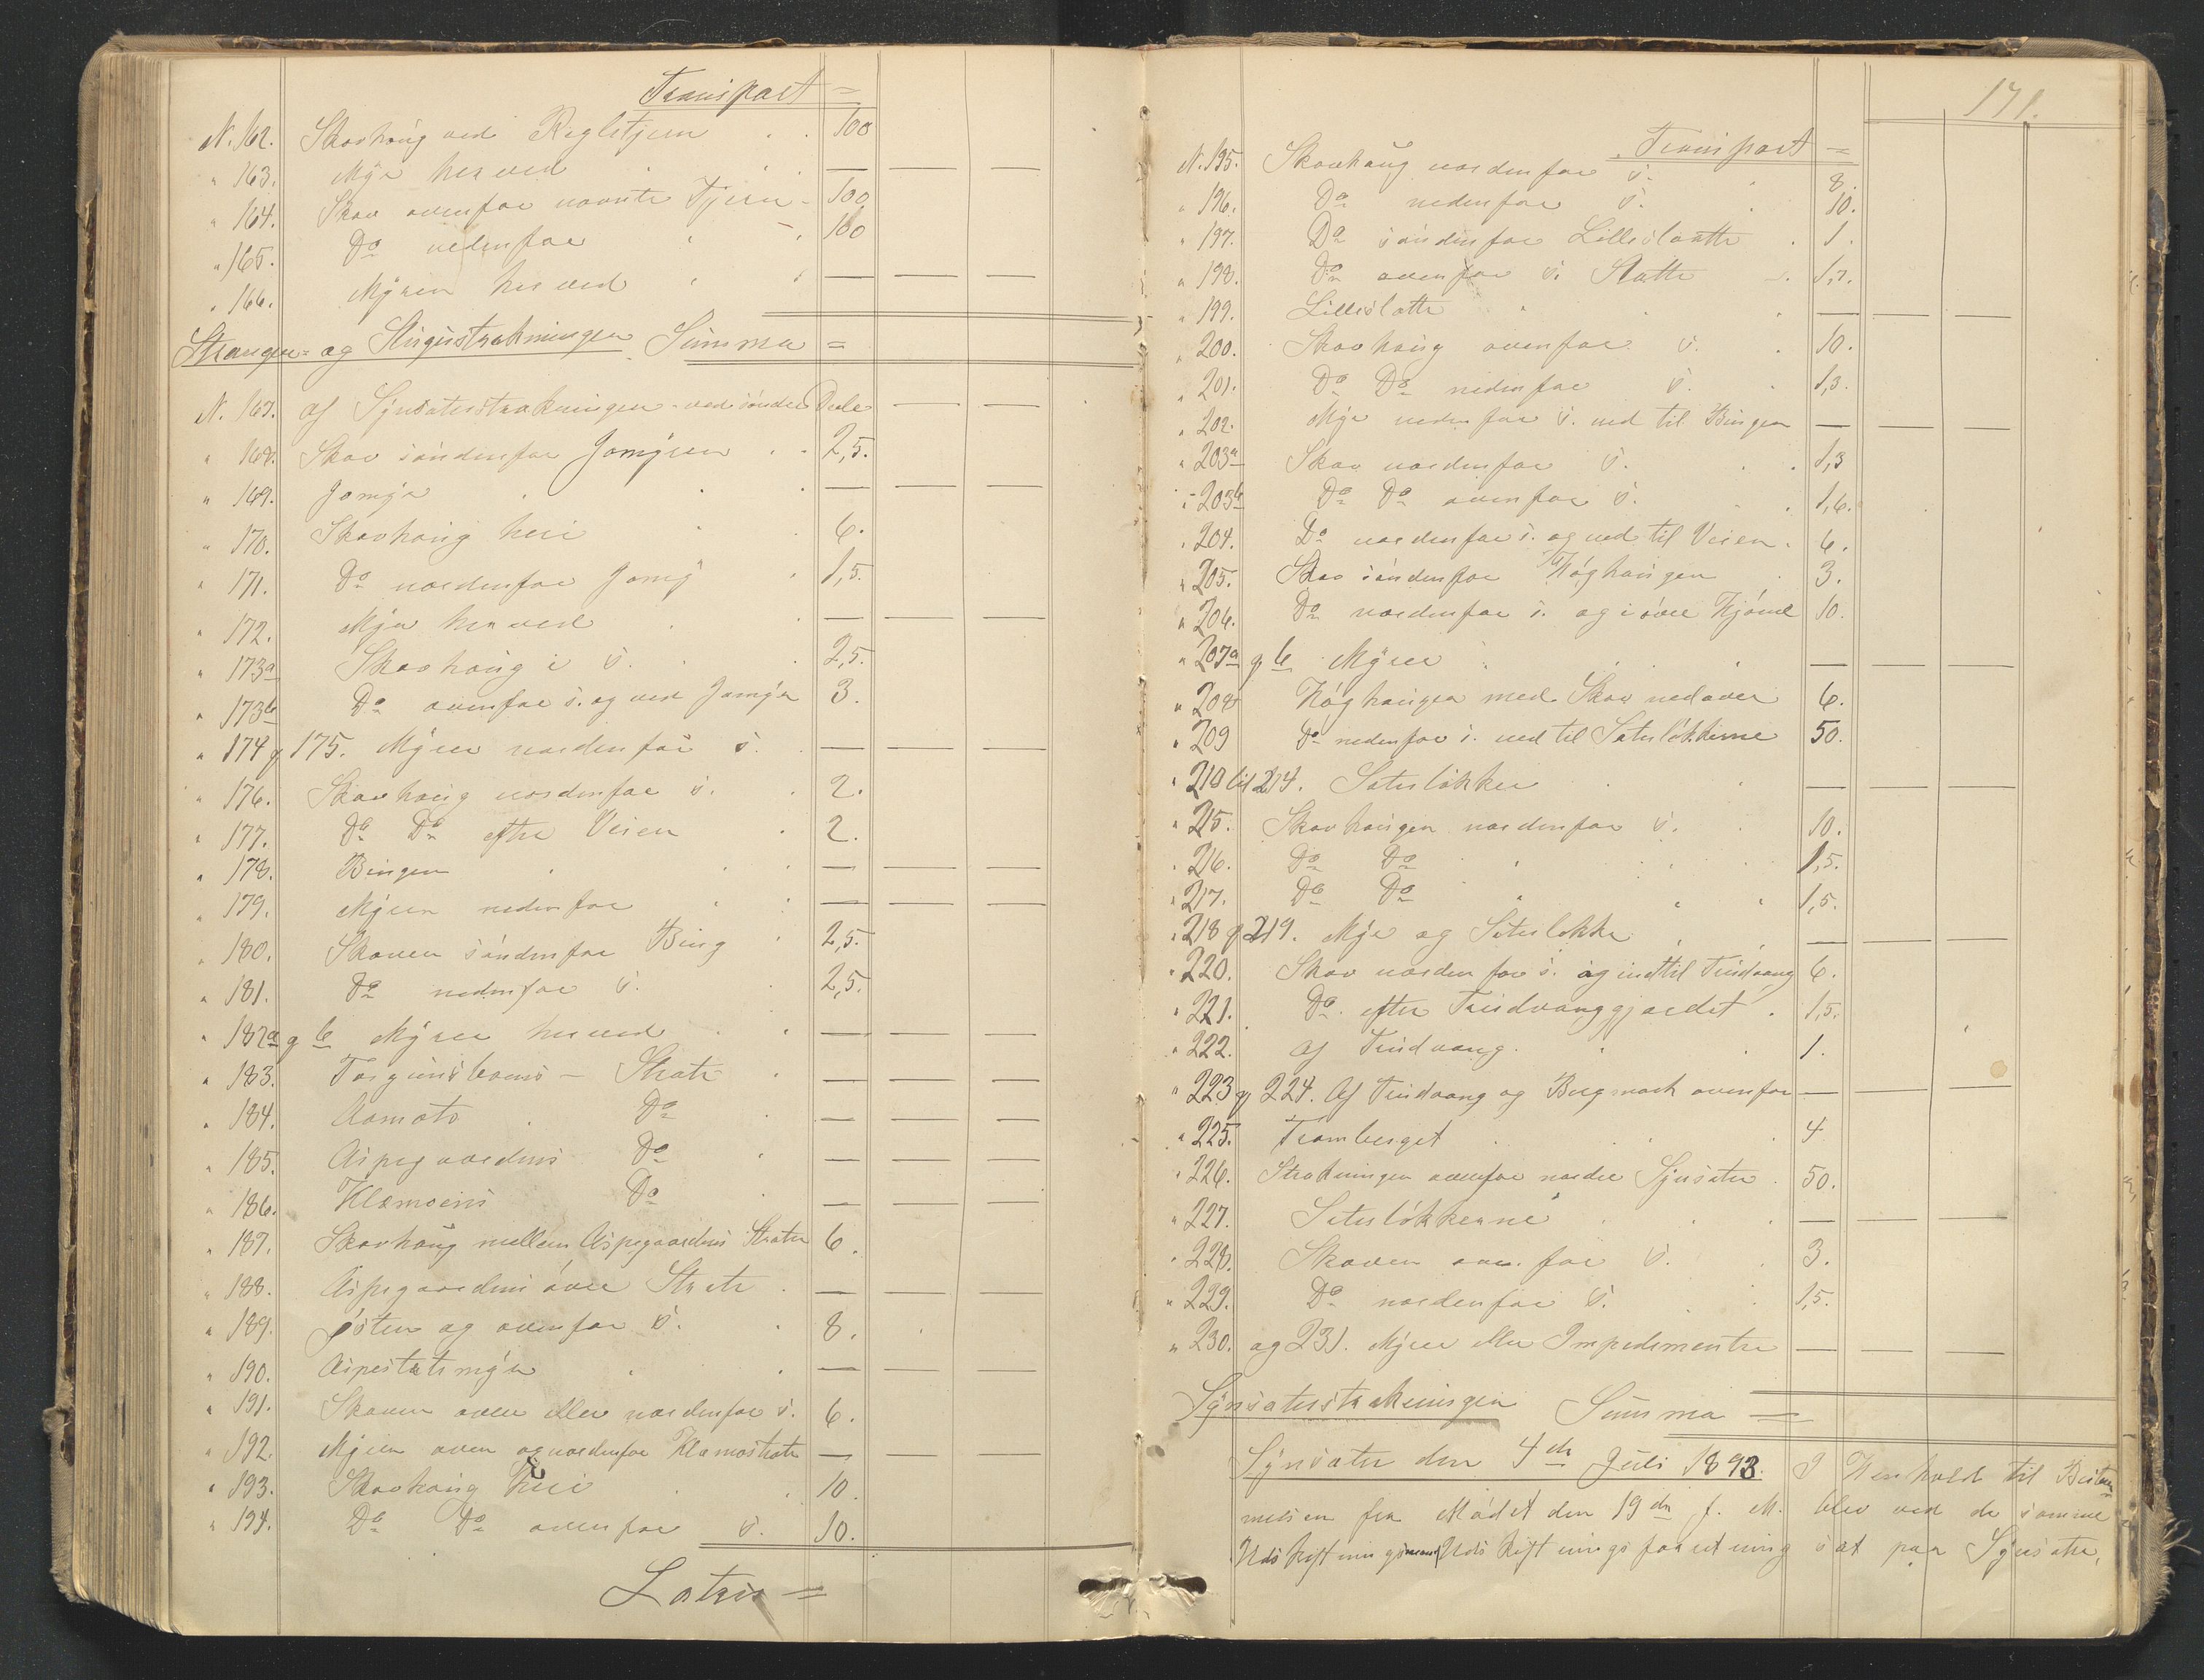 Transport =
N. 162. Skovhaug ved Regletjern . . 100
" 163. Myr herved . . — — —
" 164. Skov ovenfor nævnte Tjern - 100
" 165. Do nedenfor " - 100
" 166. Myren herved " . — — —
og Summa =
N. 167. af Synsæterstrækningen ved søndre Dele — —
" 168. Skov søndenfor Jomyren . . 2,5.
" 169. Jomyr . . — — —
" 170. Skovhaug heri . . 6.
" 171. Do nordenfor Jomyr . 1,5.
" 172. Myr herved . . — — —
" 173a Skovhaug i s. . . 2,5.
" 173b Do ovenfor s. og ved Jomyr 3.
" 174 og 175. Myrer nordenfor s. . — — —
" 176. Skovhaug nordenfor s. . 2.
" 177. Do Do efter Veien . 2.
" 178. Bingen . . . — — —
" 179. Myren nedenfor . . — — —
" 180. Skoven søndenfor Bing . 2,5.
" 181. Do nedenfor s. . 2,5.
" 182a og b Myrer herved . . — — —
" 183. - Slaatte . — — —
" 184. Aamots . Do . — — —
" 185. Aspegaardens Do . — — —
" 186. Klæmoens Do . — — —
" 187. Skovhaug mellem Aspegaardens Slaatter 6.
" 188. Aspegaardens øvre Slaatte . — — —
" 189. Østen og ovenfor s. . 8.
" 190. . . — — —
" 191. Skoven oven eller nordenfor s. 6.
" 192. Myren oven og nordenfor — —
" 193. Skovhaug heri . . 10.
" 194. Do Do ovenfor s. 10.
Latus =
171.
Transport =
N. 195. Skovhaug nordenfor s. . 8.
" 196. Do nedenfor s. . 10.
" 197. Do søndenfor Lilleslaatte . 1.
" 198. Do ovenfor s. Slaatte . 1,2.
" 199. Lilleslaatte . . — — —
" 200. Skovhaug ovenfor s. . 10.
" 201. Do Do nedenfor s. . 1,3.
" 202. Myr nedenfor s. ned til Bingen — — —
" 203a Skov nordenfor s. . . 1,3
" 203b Do Do ovenfor s. . . 1,6.
" 204. Do nordenfor s. og ned til Veien . 6.
" 205. Skov søndenfor Høghaugen . 3.
" 206. Do nordenfor s. og i øvre 10.
" 207a og b Myrer . . . — — —
" 208 Høghaugen med Skov nedover 6.
" 209 Do nedenfor s. ned til Sæterløkkerne 50.
" 210 til 214. Sæterløkker . . — — —
" 215. Skovhaugen nordenfor s. . 10.
" 216. Do Do . . . 1,5.
" 217. Do Do . . . 1,5.
" 218 og 219. Myr og Sæterløkke . . — — —
" 220. Skov nordenfor s. og indtil Trudvang 6.
" 221. Do. efter Trudvanggjærdet . 1,5.
" 222. af Trudvang . . . 1.
" 223 og 224. Af Trudvang og Bergmark ovenfor — — —
" 225. Tramberget . . . 4
" 226. Strækningen ovenfor nordre Synsæter . 50.
" 227. Sæterløkkerne . . . — — —
" 228. Skoven ovenfor s. . 3.
" 229. Do nordenfor s. . . 1,5.
" 230. og 231. Myrer eller Impedimenter — — —
Synsæterstrækningen Summa =
Synsæter den 4de Juli 1893. I Henhold til Bestem-
melsen fra Mødet den 19de f. M. blev ved de samme
Udskiftningsmænd Udskiftningsforretning sat paa Synsæter,